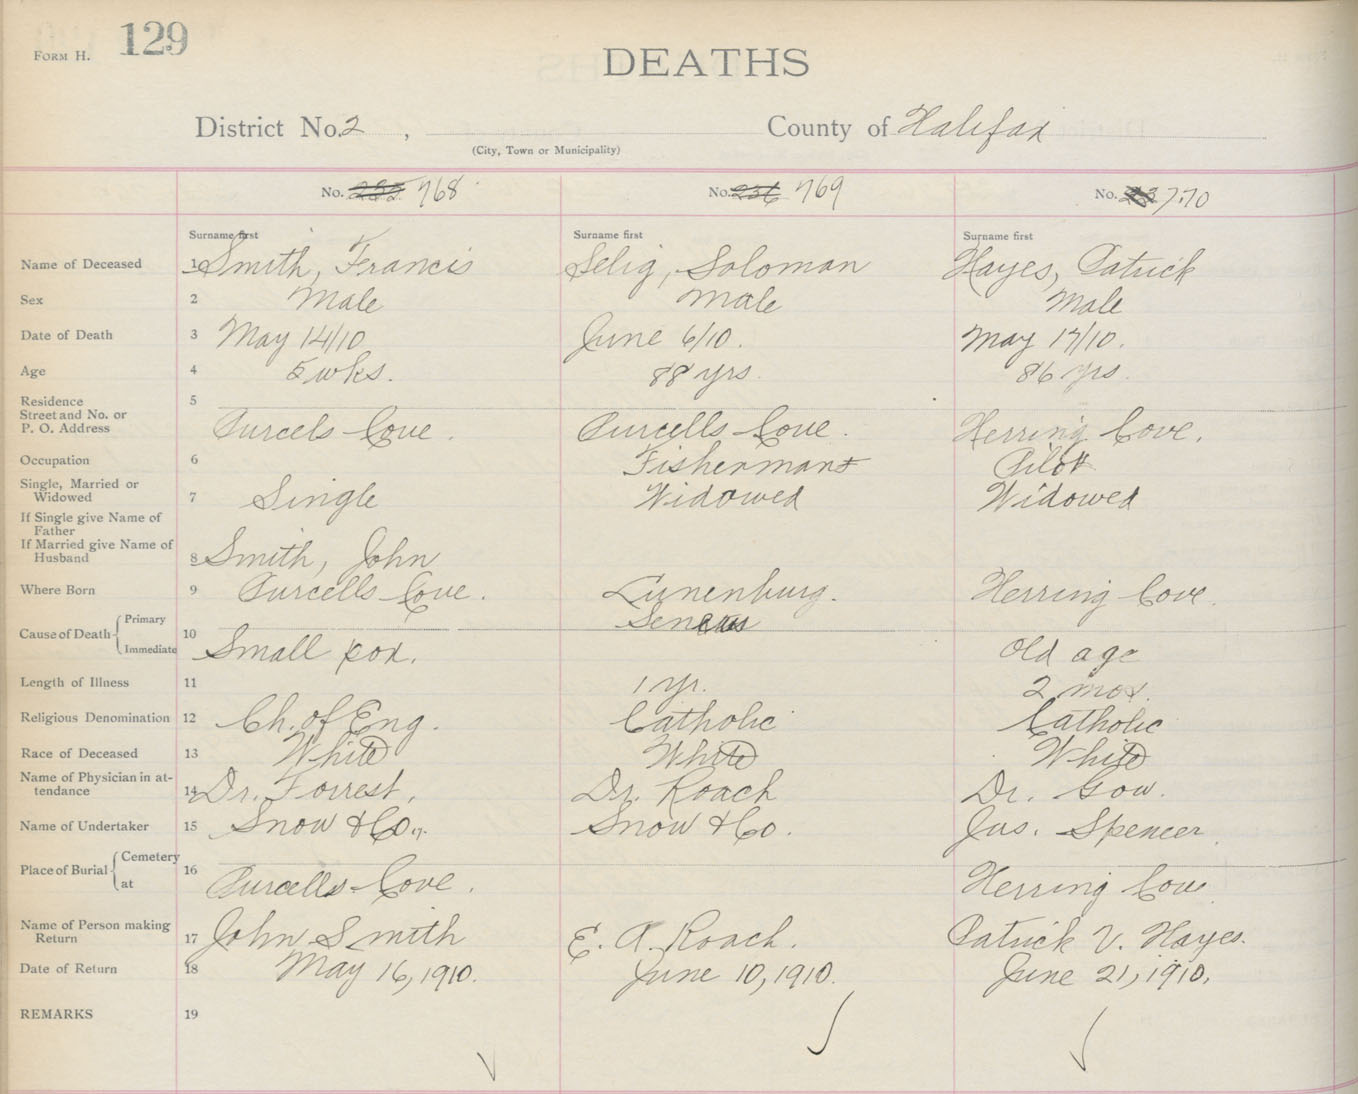 FORM H. 129
DEATHS
District No. 2 , County of Halifax
(City, Town or Municipality)
No. 768 No. 769 No. 770
Surname first Surname first Surname first
Name of Deceased 1 Smith, Francis Selig, Soloman Hayes, Patrick
Sex 2 Male Male Male
Date of Death 3 May 14/10 June 6/10. May 17/10.
Age 4 5 wks. 88 yrs. 86 yrs.
Residence 5
Street and No. or
P. O. Address Purcels Cove. Purcells Cove. Herring Cove.
Occupation 6 Fisherman Pilot
Single, Married or
Widowed 7 Single Widowed Widowed
If Single give Name of
Father
If Married give Name of
Husband 8 Smith, John
Where Born 9 Purcells Cove. Lunenburg. Herring Cove.
Cause of Death Primary
10 Immediate Small pox. Old age
Length of Illness 11 1 yr. 2 mos.
Religious Denomination 12 Ch. of Eng. Catholic Catholic
Race of Deceased 13 White White White
Name of Physician in at-
tendance 14 Dr. Forrest, Dr. Roach Dr. Gow.
Name of Undertaker 15 Snow & Co. Snow & Co. Jas. Spencer
Place of Burial Cemetery 16
at Purcells Cove. Herring Cove
Name of Person making
Return 17 John Smith E. A. Roach. Patrick V. Hayes.
Date of Return 18 May 16, 1910. June 10, 1910. June 21, 1910.
REMARKS 19